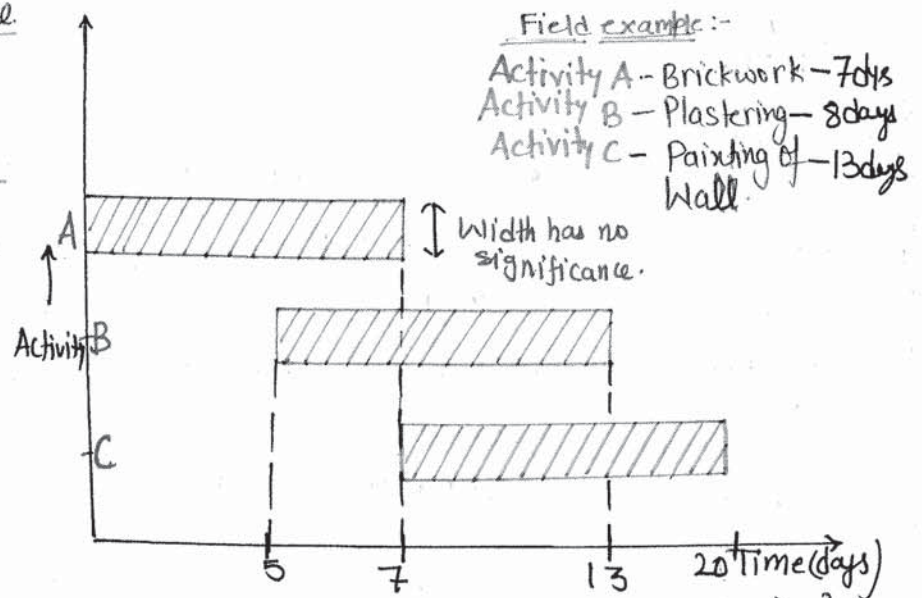 Field example :-
Activity A - Brickwork - 7dys
Activity B - Plastering - 8days
Activity C - Painting of - 13days
Wall.
A
Width has no
significance.
Activity
B
C
5
7
13
20
Time (days)